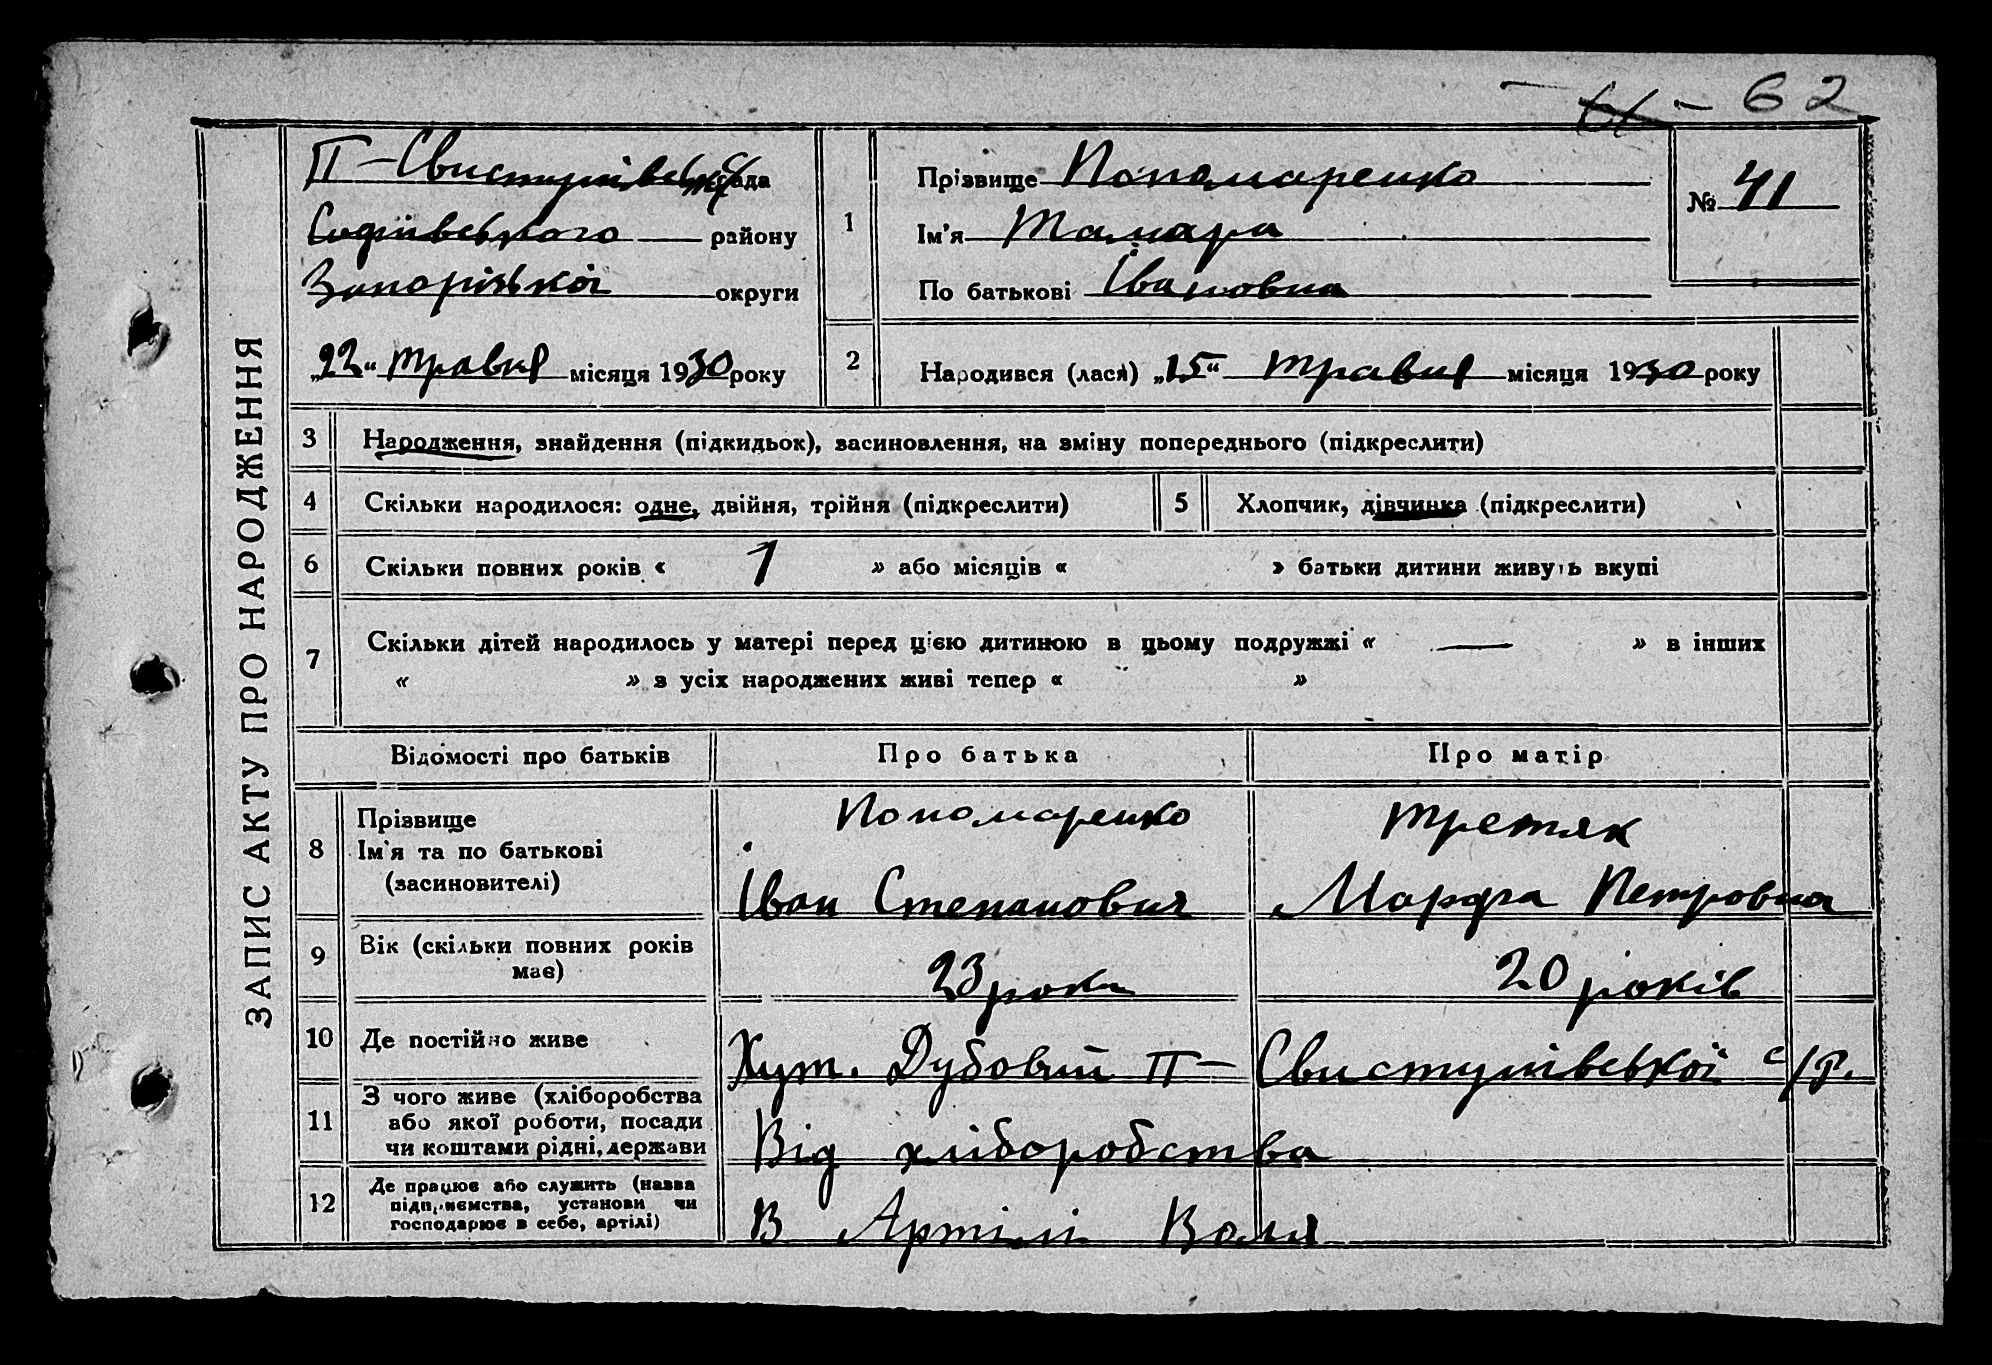 62
ЗАПИС АКТУ ПРО НАРОДЖЕННЯ
П-Свистунівської с/рада
Софіївського району
Запорізької округи
„22“ травня місяця 1930 року
1
Прізвище Пономаренко
Ім'я Тамара
По батькові Івановна
№ 41
2 Народився (лася) „15“ травня місяця 1930 року
3 Народження, знайдення (підкидьок), засиновлення, на зміну попереднього (підкреслити)
4 Скільки народилося: одне, двійня, трійня (підкреслити) 5 Хлопчик, дівчинка (підкреслити)
6 Скільки повних років « 1 » або місяців « » батьки дитини живуть вкупі
7 Скільки дітей народилось у матері перед цією дитиною в цьому подружжі « — » в інших
« » з усіх народжених живі тепер « »
Відомості про батьків Про батька Про матір
8 Прізвище
Ім'я та по батькові
(засиновителі)
Пономаренко
Іван Степанович
Третяк
Марфа Петровна
9 Вік (скільки повних років
має)
23 роки 20 років
10 Де постійно живе Хут. Дубовий П-Свистунівської с/р.
11 З чого живе (хліборобства
або якої роботи, посади
чи коштами рідні, держави
Від хліборобства
12 Де працює або служить (назва
підприємства, установи чи
господарює в себе, артілі)
В Артілі Воля